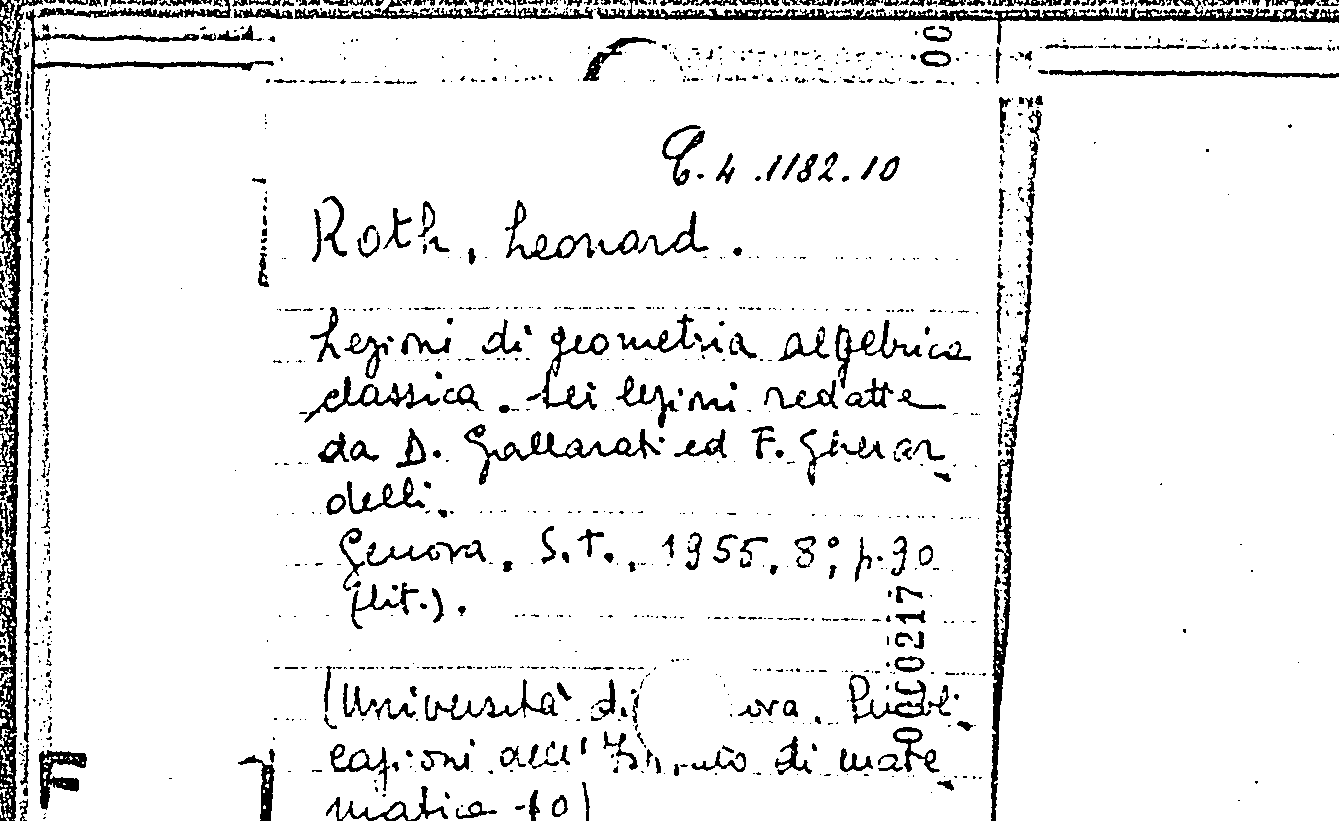 00
C.4.1182.10
Roth, Leonard.
Lezioni di geometria algebrica
classica. Sei lezioni redatte
da D. Gallarati ed F. Gherar
delli.
Genova, S.T., 1955, 8°, p. 90
(lit.).
(Università di ova. Pubbli
cazioni dell' di mate
matica 10)
0217
F